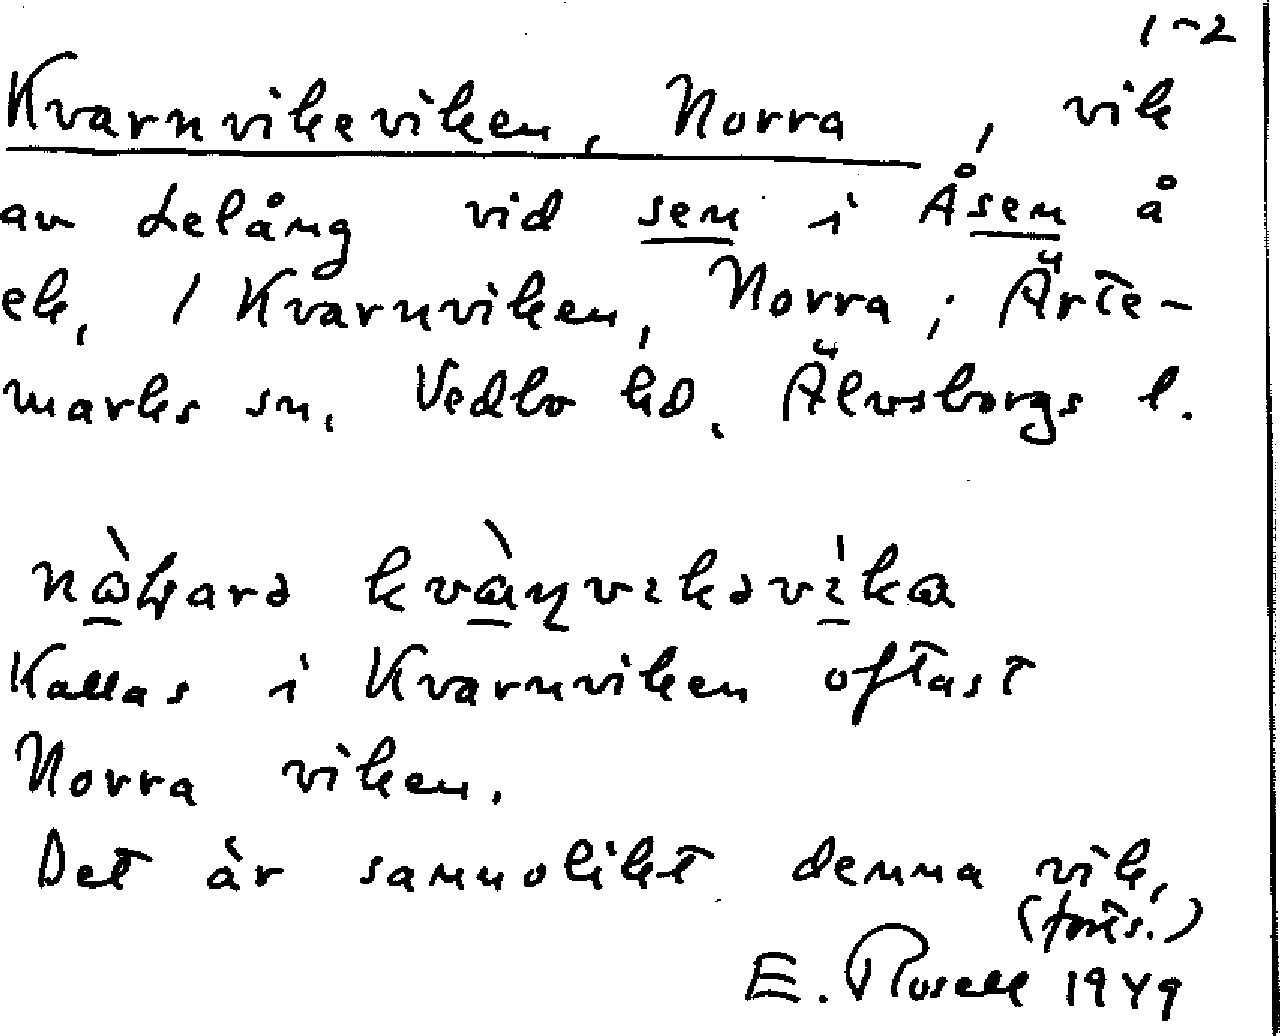 1-2
Kvarnvikeviken, Norra, vik
av Lelång vid sen i Åsen å
ek, / Kvarnviken, Norra; Ärte-
marks sn, Vedbo hd, Älvsborgs l.
Kallas i Kvarnviken oftast
Norra viken.
Det är sannolikt denna vik,
(forts.)
E. Rosell 1949